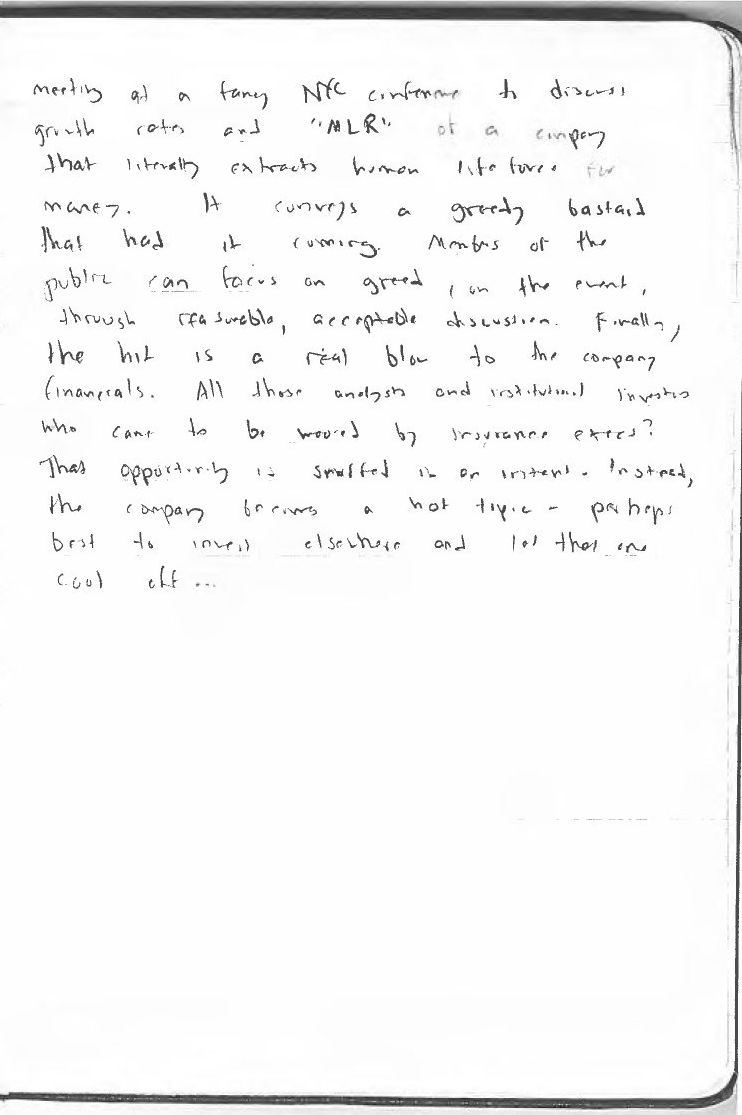 meeting at a fancy NYC conference to discuss
growth rates and "MLR" of a company
that literally extracts human life force for
money. It conveys a greedy bastard
that had it coming. Members of the
public can focus on greed, on the event,
through reasonable, acceptable discussion. Finally,
the hit is a real blow to the company
financials. All those analysts and institutional investors
who came to be wooed by insurance execs?
That opportunity is snuffed in an instant. Instead,
the company becomes a hot topic - perhaps
best to invest elsewhere and let that one
cool off ...